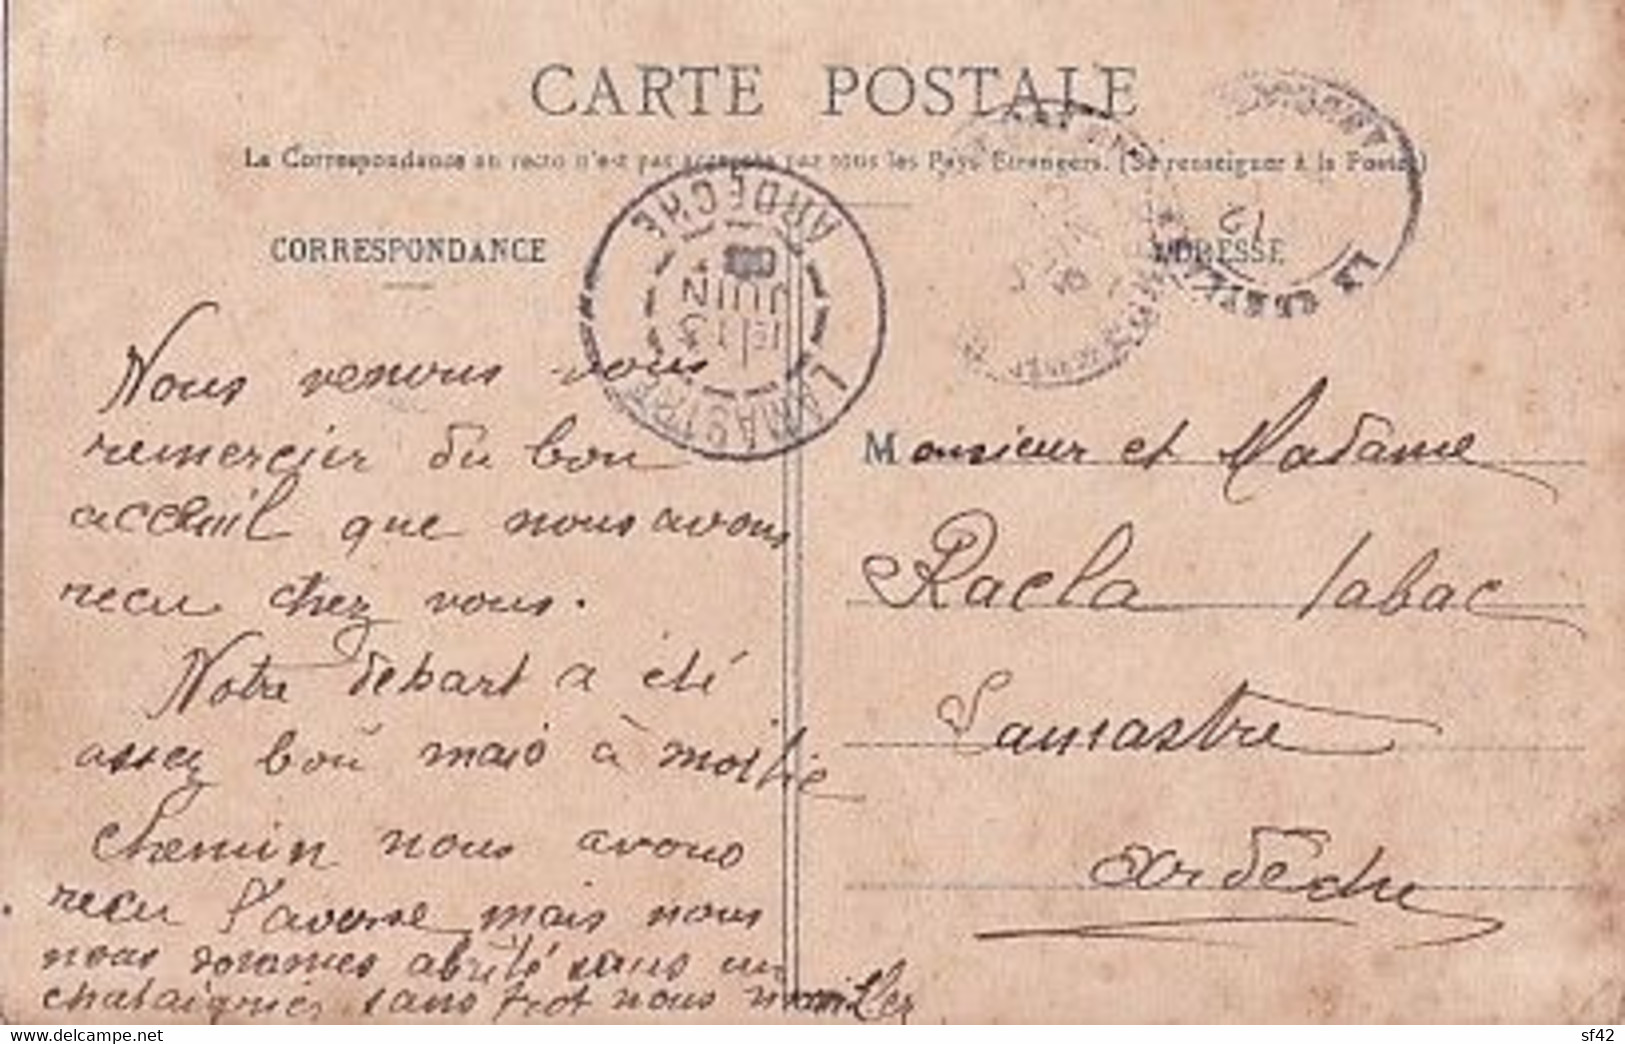 CARTE POSTALE
La Correspondance au recto n'est pas acceptée par tous les Pays Étrangers. (Se renseigner à la Poste)
CORRESPONDANCE
ADRESSE
LAMASTRE
ARDÈCHE
12
Nous venons vous
remercier du bon
acceuil que nous avons
recu chez vous.
Notre depart a été
assez bon mais à moitie
chemin nous avons
recu l'averse mais nous
nous sommes abrité sous un
chataignier sans trot nous mouiller
Monsieur et Madame
Racla tabac
Lamastre
Ardèche
www.delcampe.net
sf42